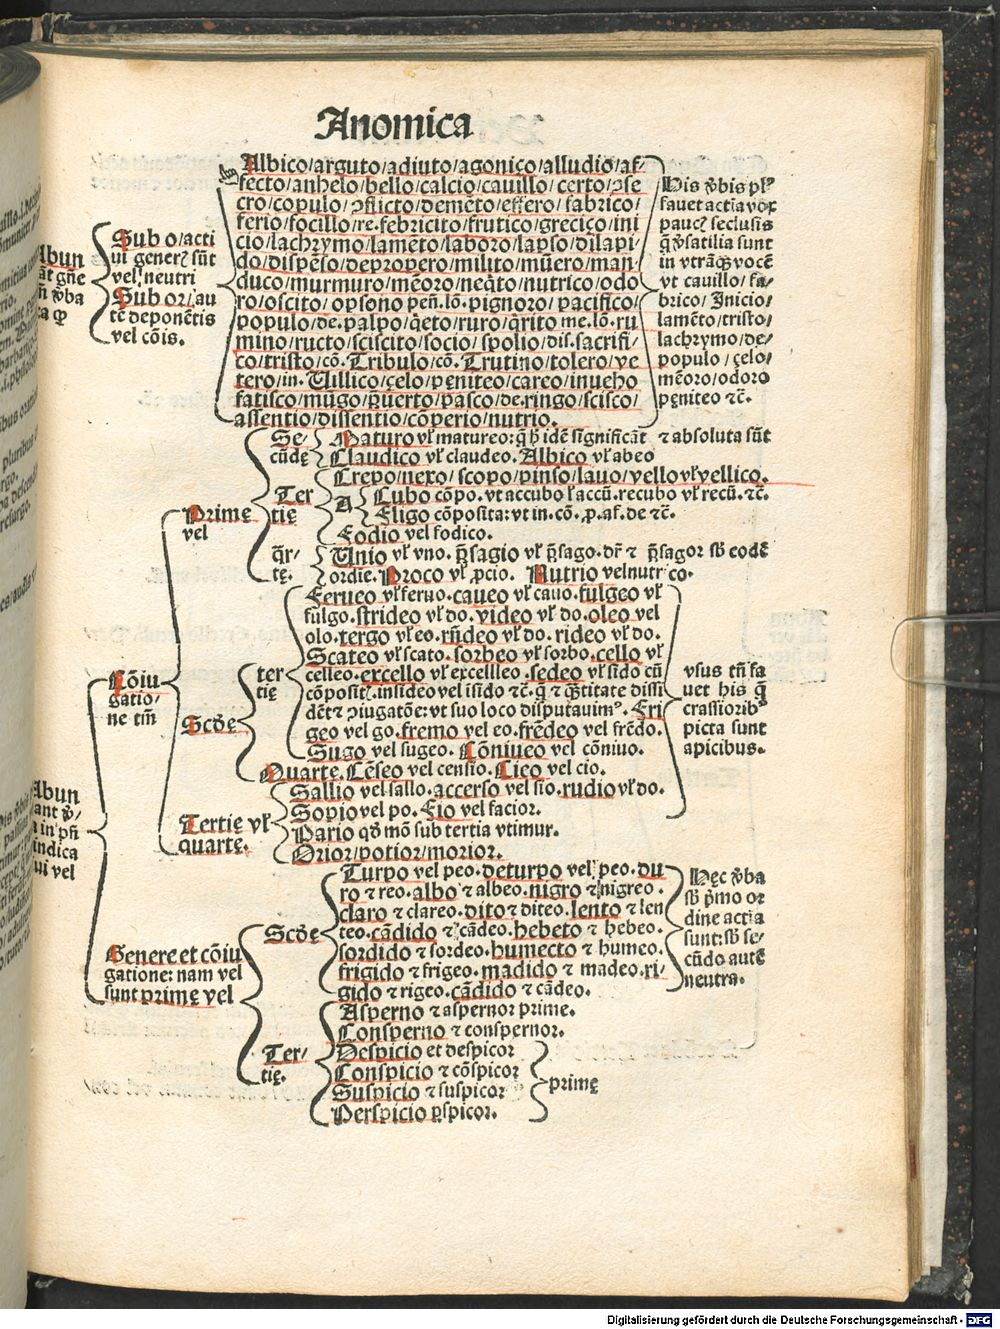 Anomica
Albico/arguto/adiuto/agonico/alludio/af-
fecto/anhelo/bello/calcio/cauillo/certo/ꝯse
cro/copulo/ꝯflicto/demēto/effero/fabrico/
ferio/focillo/re.febricito/frutico/grecico/ini
cio/lachrymo/lamēto/laboro/lapso/dilapi-
do/dispēso/depropero/milito/mūero/man/
duco/murmuro/mēoro/neq̄to/nutrico/odo
ro/oscito/opsono pen̄.lō.pignoro/pacifico/
populo/de.palpo/q̄eto/ruro/q̄rito me.lō.ru
mino/ructo/sciscito/socio/spolio/dis.sacrifi-
co/tristo/cō.Tribulo/cō.Trutino/tolero/ve
tero/in.Uillico/çelo/pęniteo/careo/inueho
fatisco/mūgo/p̄uerto/pasco/de.ringo/scisco/
assentio/dissentio/cōperio/nutrio.
His v̄bis pl'
fauet actia vox
paucꝭ seclusis
q̄ v̄satilia sunt
in vtrāq̨ vocē
vt cauillo/fa-
brico/Inicio/
lamēto/tristo/
lachrymo/de-
populo/çelo/
mēoro/odoro
pęniteo ⁊c̄.
Abun
āt gn̄e
v̄ba
Sub o/acti
ui generꝭ sūt
vel neutri
Sub or/au
tē deponētis
vel cōis.
Se-
cūdę
Maturo vl' matureo:q̄ h̨ idē significāt ⁊ absoluta sūt
Claudico vl' claudeo.Albico vl' abeo
Prime
vel
Ter
tię
Crepo/nexo/scopo/pinso/lauo/vello vl' vellico.
A
Cubo cōpo.vt accubo vl' accū.recubo vl' recū.⁊c̄.
Eligo cōposita:vt in.cō.p.af.de ⁊c̄.
Fodio vel fodico.
q̄r-
tę.
Unio vl' vno.p̄sagio vl' p̄sago.dr̄ ⁊ p̄sagor sb̄ eodē
ordīe.Proco vl' ꝓcio. Nutrio vel nutrico.
Ferueo vl' feruo.caueo vl' cauo.fulgeo vl'
fulgo.strideo vl' do.video vl' do.oleo vel
olo.tergo vl' eo.rn̄deo vl' do.rideo vl' do.
Scateo vl' scato.sorbeo vl' sorbo.cello vl'
celleo.excello vl' excellleo.sedeo vl' sido cū
cōpositꝭ.insideo vel īsido ⁊c̄.q̄ ⁊ q̄titate dissi
dēt ⁊ ꝯiugatōe:vt suo loco disputauimꝰ.Fri
geo vel go.fremo vel eo.frēdeo vel frēdo.
Sugo vel sugeo.Cōniueo vel cōniuo.
vsus tn̄ fa
uet his q̄
crassioribꝰ
picta sunt
apicibus.
ter
tię
Cōiu
gatio/
ne tm̄
Scd̄ę
Quarte.Cēseo vel censio.Cieo vel cio.
Abun
ant v̄/
a in p̄si
indica
ui vel
Tertię vl'
quarte.
Sallio vel sallo.accerso vel sio.rudio vl' do.
Sopio vel po.Fio vel facior.
Pario qd̄ mō sub tertia vtimur.
Orior/potior/morior.
Turpo vel peo.deturpo vel peo.du
ro ⁊ reo.albo ⁊ albeo.nigro ⁊ nigreo.
claro ⁊ clareo.dito ⁊ diteo.lento ⁊ len
teo.cādido ⁊ cādeo.hebeto ⁊ hebeo.
sordido ⁊ sordeo.humecto ⁊ humeo.
frigido ⁊ frigeo.madido ⁊ madeo.ri-
gido ⁊ rigeo.cādido ⁊ cādeo.
Hęc v̄ba
sb̄ p̄mo or
dine actia
sunt:sb̄ se-
cūdo autē
neutra.
Scd̄ę
Genere et cōiu
gatione:nam vel
sunt primę vel
Ter/
tię.
Asperno ⁊ aspernor prime.
Consperno ⁊ conspernor.
Despicio et despicor
Conspicio ⁊ cōspicor
Suspicio ⁊ suspicor
Perspicio ꝑspicor.
primę
Digitalisierung gefördert durch die Deutsche Forschungsgemeinschaft - DFG